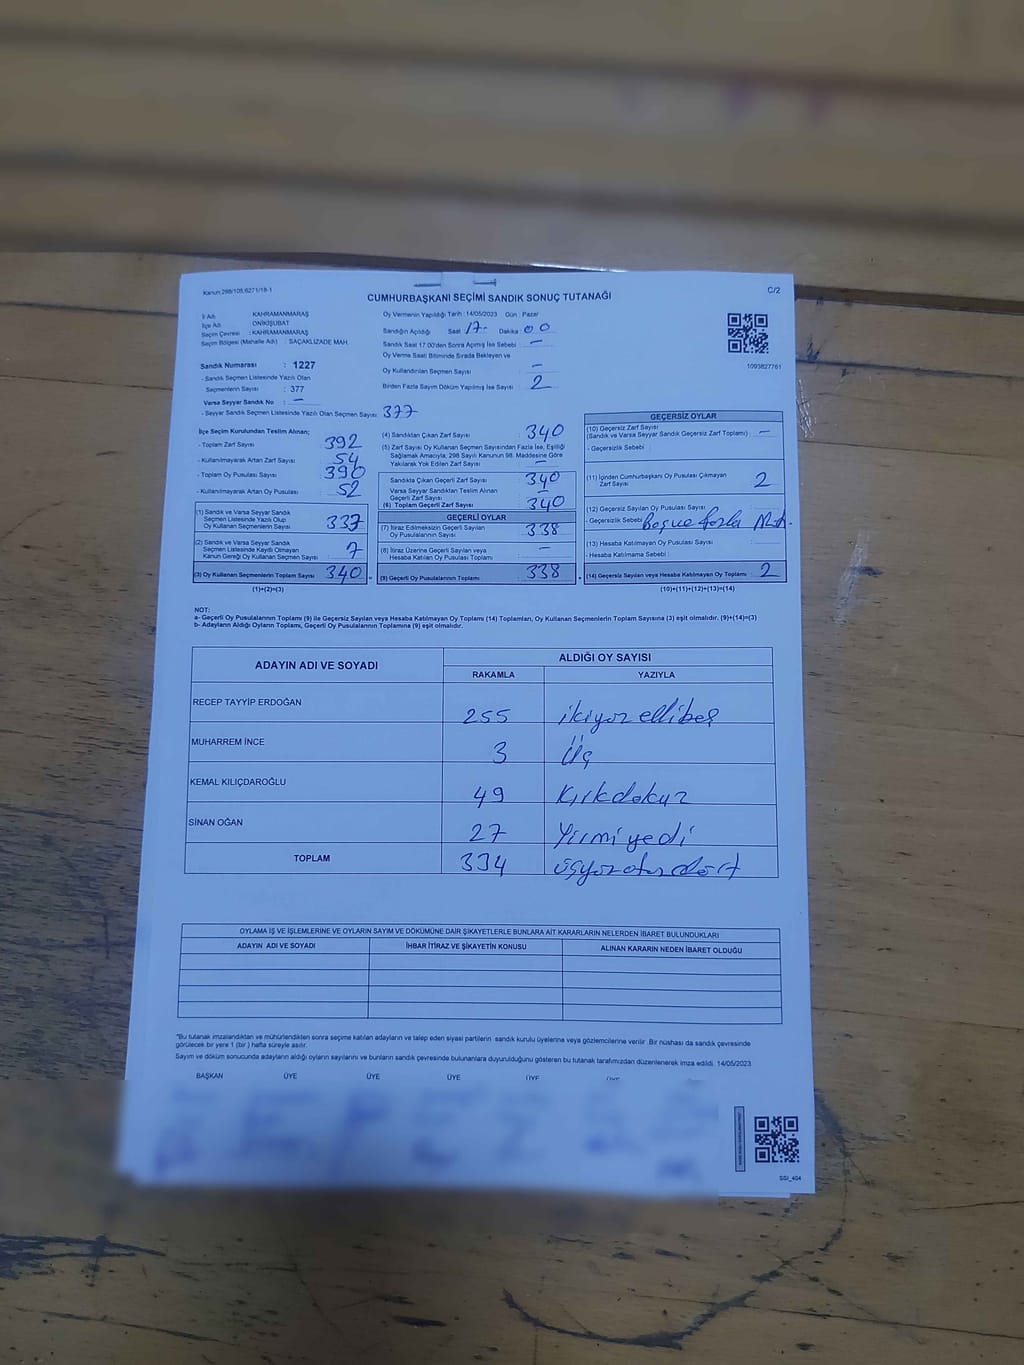 Kanun:298/105,6271/18-1
C/2
CUMHURBAŞKANI SEÇİMİ SANDIK SONUÇ TUTANAĞI
İl Adı : KAHRAMANMARAŞ
İlçe Adı : ONİKİŞUBAT
Seçim Çevresi : KAHRAMANMARAŞ
Seçim Bölgesi (Mahalle Adı) : SAÇAKLIZADE MAH.
Sandık Numarası : 1227
- Sandık Seçmen Listesinde Yazılı Olan
Seçmenlerin Sayısı : 377
Varsa Seyyar Sandık No : —
- Seyyar Sandık Seçmen Listesinde Yazılı Olan Seçmen Sayısı: 377
Oy Vermenin Yapıldığı Tarih :14/05/2023 Gün : Pazar
Sandığın Açıldığı Saat : 17- Dakika : 00
Sandık Saat 17:00'den Sonra Açılmış İse Sebebi : —
Oy Verme Saati Bitiminde Sırada Bekleyen ve
Oy Kullandırılan Seçmen Sayısı : —
Birden Fazla Sayım Döküm Yapılmış İse Sayısı : 2
1093827761
İlçe Seçim Kurulundan Teslim Alınan;
- Toplam Zarf Sayısı : 392
- Kullanılmayarak Artan Zarf Sayısı : 54
- Toplam Oy Pusulası Sayısı : 390
- Kullanılmayarak Artan Oy Pusulası : 52
(1) Sandık ve Varsa Seyyar Sandık
Seçmen Listesinde Yazılı Olup
Oy Kullanan Seçmenlerin Sayısı : 337
(2) Sandık ve Varsa Seyyar Sandık
Seçmen Listesinde Kaydı Olmayan
Kanun Gereği Oy Kullanan Seçmen Sayısı : 7
(3) Oy Kullanan Seçmenlerin Toplam Sayısı : 340
(1)+(2)=(3)
(4) Sandıktan Çıkan Zarf Sayısı : 340
(5) Zarf Sayısı Oy Kullanan Seçmen Sayısından Fazla İse, Eşitliği
Sağlamak Amacıyla, 298 Sayılı Kanunun 98. Maddesine Göre
Yakılarak Yok Edilen Zarf Sayısı : —
Sandıkta Çıkan Geçerli Zarf Sayısı : 340
Varsa Seyyar Sandıktan Teslim Alınan
Geçerli Zarf Sayısı : —
(6) Toplam Geçerli Zarf Sayısı : 340
GEÇERLİ OYLAR
(7) İtiraz Edilmeksizin Geçerli Sayılan
Oy Pusulalarının Sayısı : 338
(8) İtiraz Üzerine Geçerli Sayılan veya
Hesaba Katılan Oy Pusulası Toplamı : —
(9) Geçerli Oy Pusulalarının Toplamı : 338
GEÇERSİZ OYLAR
(10) Geçersiz Zarf Sayısı
(Sandık ve Varsa Seyyar Sandık Geçersiz Zarf Toplamı) : —
- Geçersizlik Sebebi :
(11) İçinden Cumhurbaşkanı Oy Pusulası Çıkmayan
Zarf Sayısı : 2
(12) Geçersiz Sayılan Oy Pusulası Sayısı :
- Geçersizlik Sebebi : fazla
(13) Hesaba Katılmayan Oy Pusulası Sayısı :
- Hesaba Katılmama Sebebi :
(14) Geçersiz Sayılan veya Hesaba Katılmayan Oy Toplamı : 2
(10)+(11)+(12)+(13)=(14)
NOT:
a- Geçerli Oy Pusulalarının Toplamı (9) ile Geçersiz Sayılan veya Hesaba Katılmayan Oy Toplamı (14) Toplamları, Oy Kullanan Seçmenlerin Toplam Sayısına (3) eşit olmalıdır. (9)+(14)=(3)
b- Adayların Aldığı Oyların Toplamı, Geçerli Oy Pusulalarının Toplamına (9) eşit olmalıdır.
ADAYIN ADI VE SOYADI
ALDIĞI OY SAYISI
RAKAMLA YAZIYLA
RECEP TAYYİP ERDOĞAN 255 ikiyüz ellibeş
MUHARREM İNCE 3 Üç
KEMAL KILIÇDAROĞLU 49 Kırkdokuz
SİNAN OĞAN 27 Yirmiyedi
TOPLAM 334 üçyüzotuzdört
OYLAMA İŞ VE İŞLEMLERİNE VE OYLARIN SAYIM VE DÖKÜMÜNE DAİR ŞİKAYETLERLE BUNLARA AİT KARARLARIN NELERDEN İBARET BULUNDUKLARI
ADAYIN ADI VE SOYADI İHBAR İTİRAZ VE ŞİKAYETİN KONUSU ALINAN KARARIN NEDEN İBARET OLDUĞU
*Bu tutanak imzalandıktan ve mühürlendikten sonra seçime katılan adayların ve talep eden siyasi partilerin sandık kurulu üyelerine veya gözlemcilerine verilir. Bir nüshası da sandık çevresinde
görülecek bir yere 1 (bir) hafta süreyle asılır.
Sayım ve döküm sonucunda adayların aldığı oyların sayılarını ve bunların sandık çevresinde bulunanlara duyurulduğunu gösteren bu tutanak tarafımızdan düzenlenerek imza edildi. 14/05/2023
BAŞKAN ÜYE ÜYE ÜYE ÜYE ÜYE
SSI_404